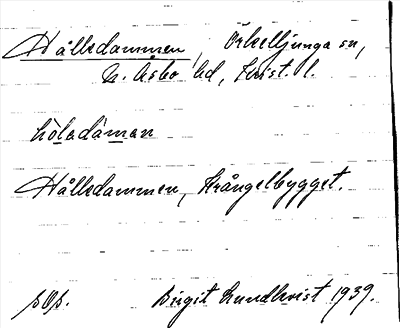 Hållsdammen, Örkelljunga sn,
N. Åsbo hd, Krist. l.
hòladáman
Hållsdammen, Krångelbygget.
sOs.
Birgit Lundkvist 1939.